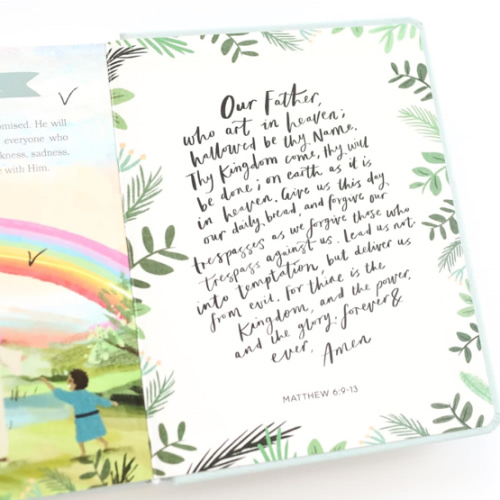 omised. He will
everyone who
kness, sadness,
with Him.
Our Father,
who art in heaven;
hallowed be thy Name.
Thy Kingdom come, thy will
be done; on earth as it is
in heaven. Give us this day
our daily bread, and forgive our
trespasses as we forgive those who
trespass against us. Lead us not
into temptation, but deliver us
from evil. For thine is the
Kingdom, and the power,
and the glory, forever &
ever, Amen
MATTHEW 6:9-13